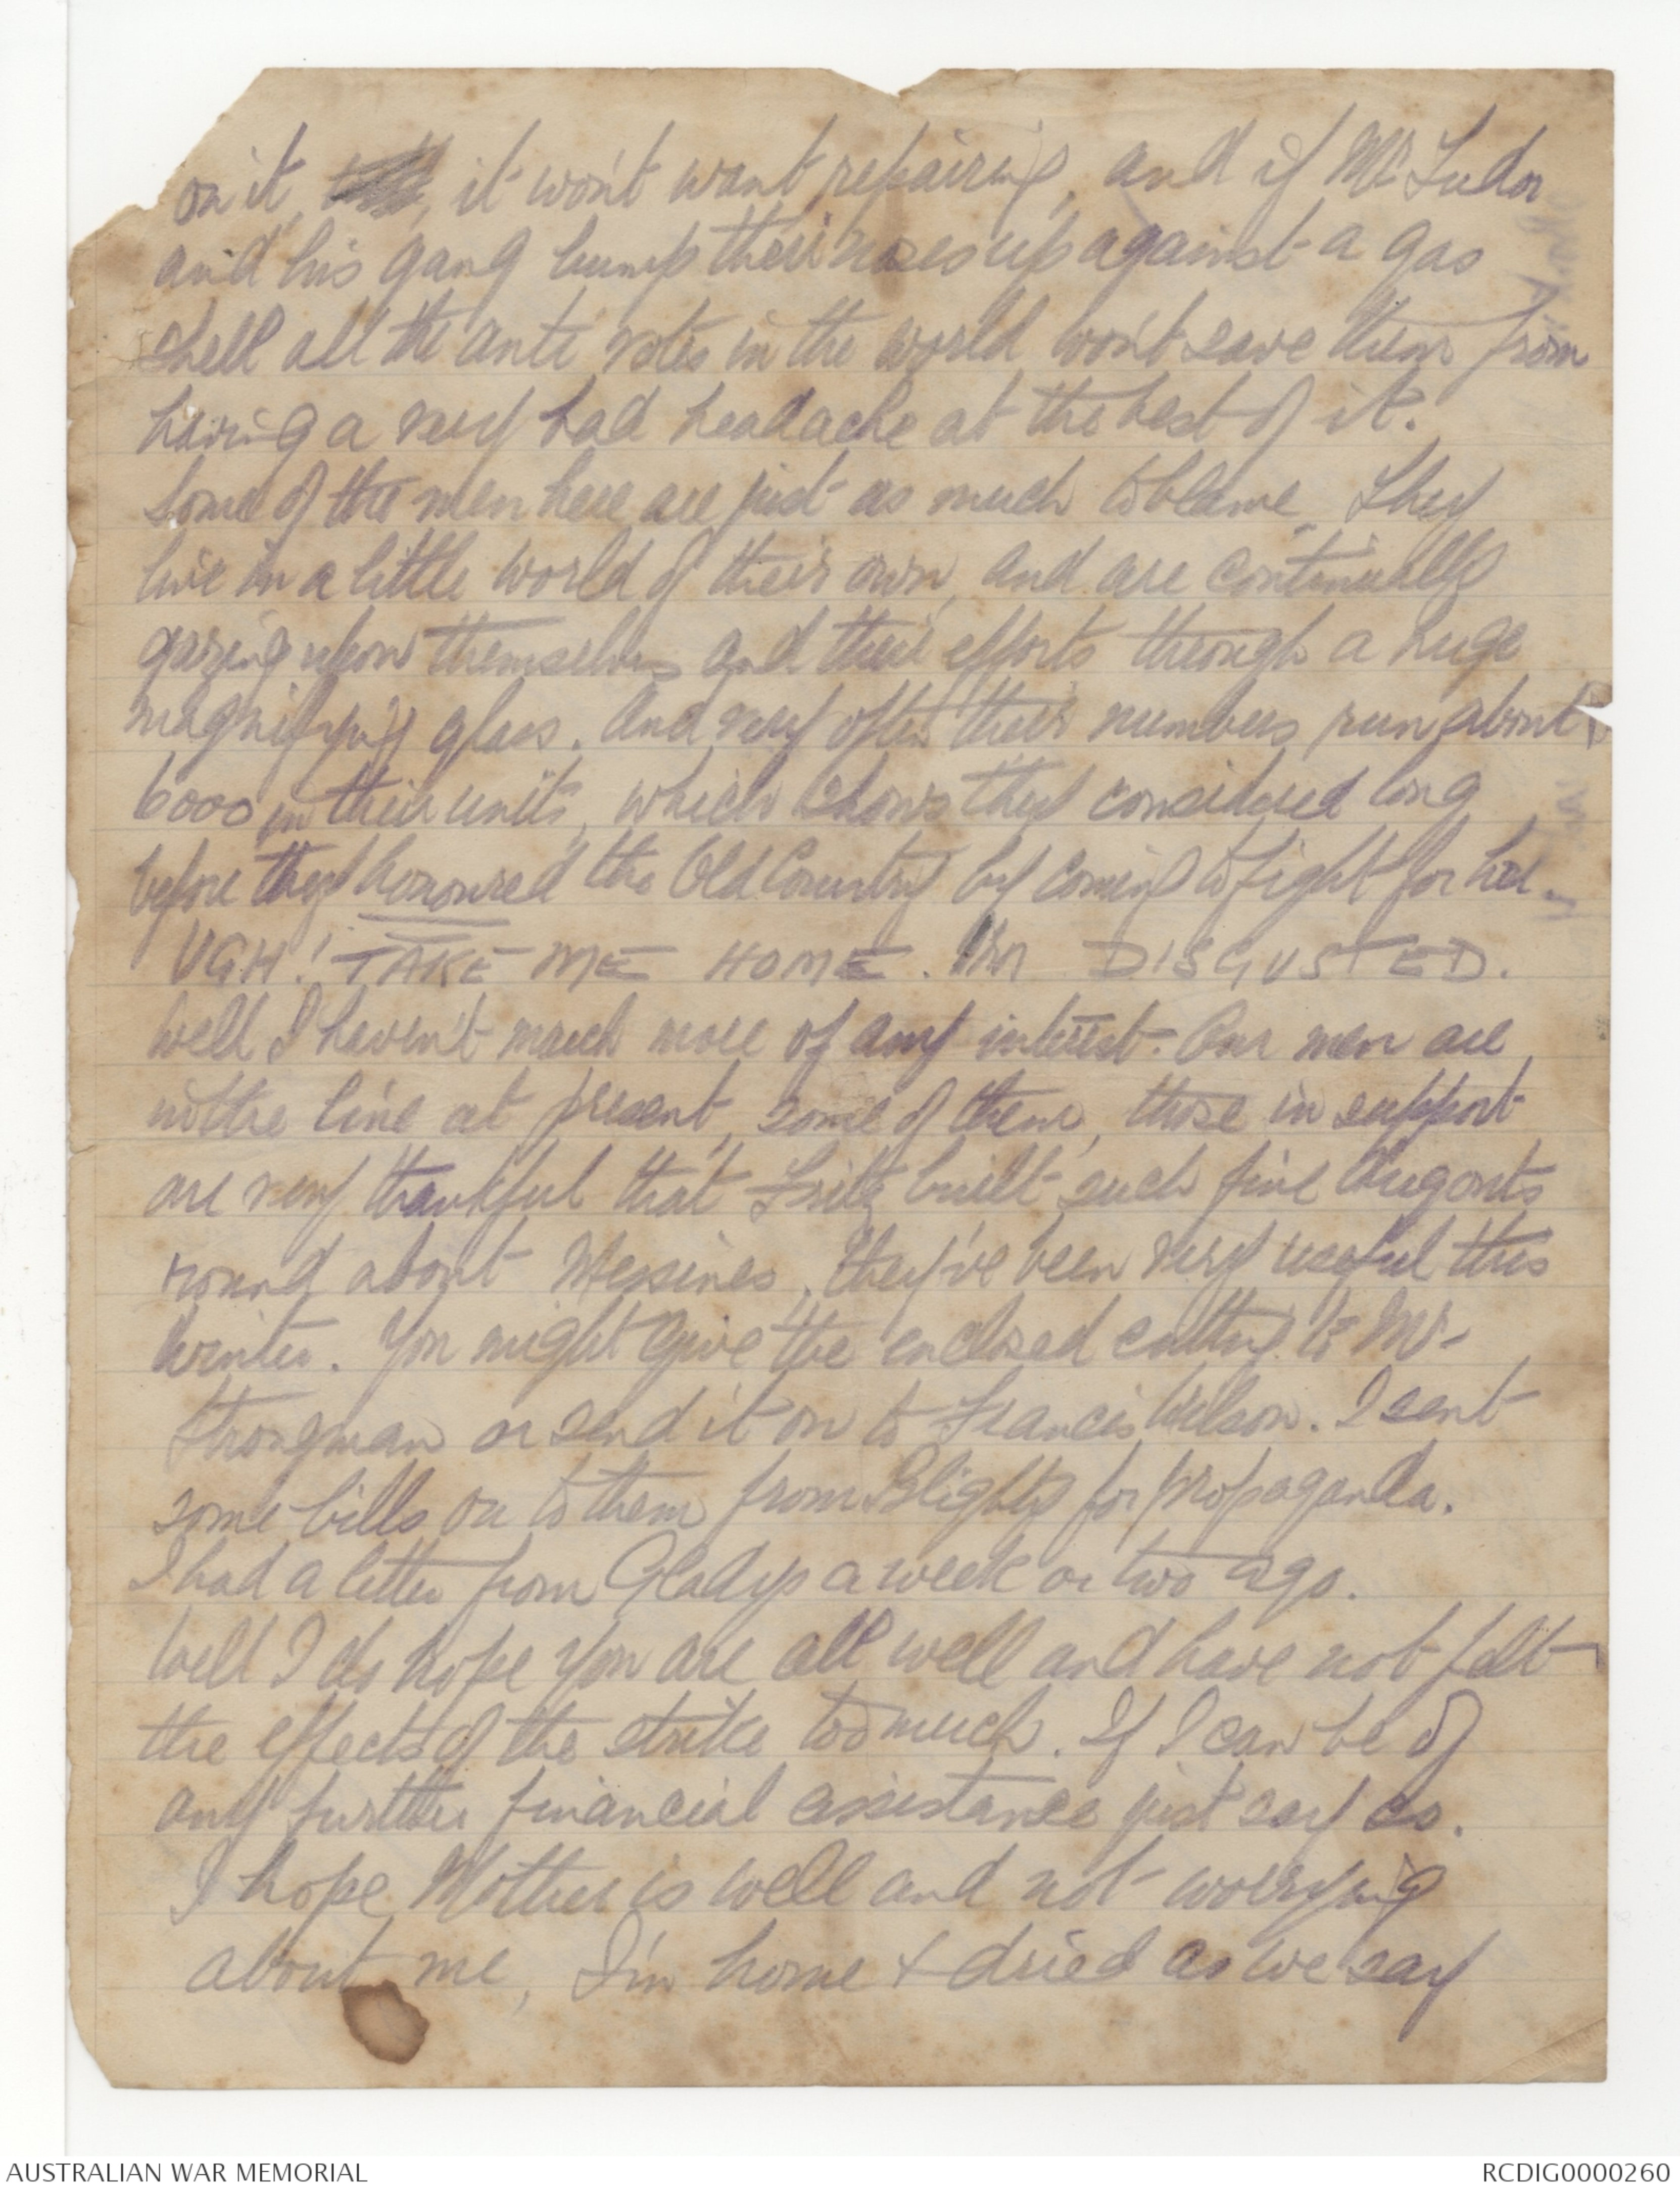 on it, it won't want repairing, and if Mr Tudor
and his gang bump their noses up against a gas
shell all the anti votes in the world won't save them from
having a very bad headache at the best of it.
Some of the men here are just as much to blame. They
live in a little world of their own, and are continually
gazing upon themselves and their efforts through a huge
magnifying glass. And very often their numbers run about
6000 in their units, which shows they considered long
before they honoured the Old Country by coming to fight for her.
UGH! TAKE ME HOME. I'm DISGUSTED.
Well I haven't much more of any interest. Our men are
in the line at present, some of them, those in support
are very thankful that Fritz built such fine dugouts
round about Messines, they've been very useful this
winter. You might give the enclosed cutting to Mr-
Strongman or send it on to Francis Wilson. I sent
some bills on to them from Blighty for propaganda.
I had a letter from Gladys a week or two ago.
Well I do hope you are all well and have not felt
the effects of the strike too much. If I can be of
any further financial assistance just say so.
I hope Mother is well and not worrying
about me, I'm home & dried as we say
AUSTRALIAN WAR MEMORIAL
RCDIG0000260